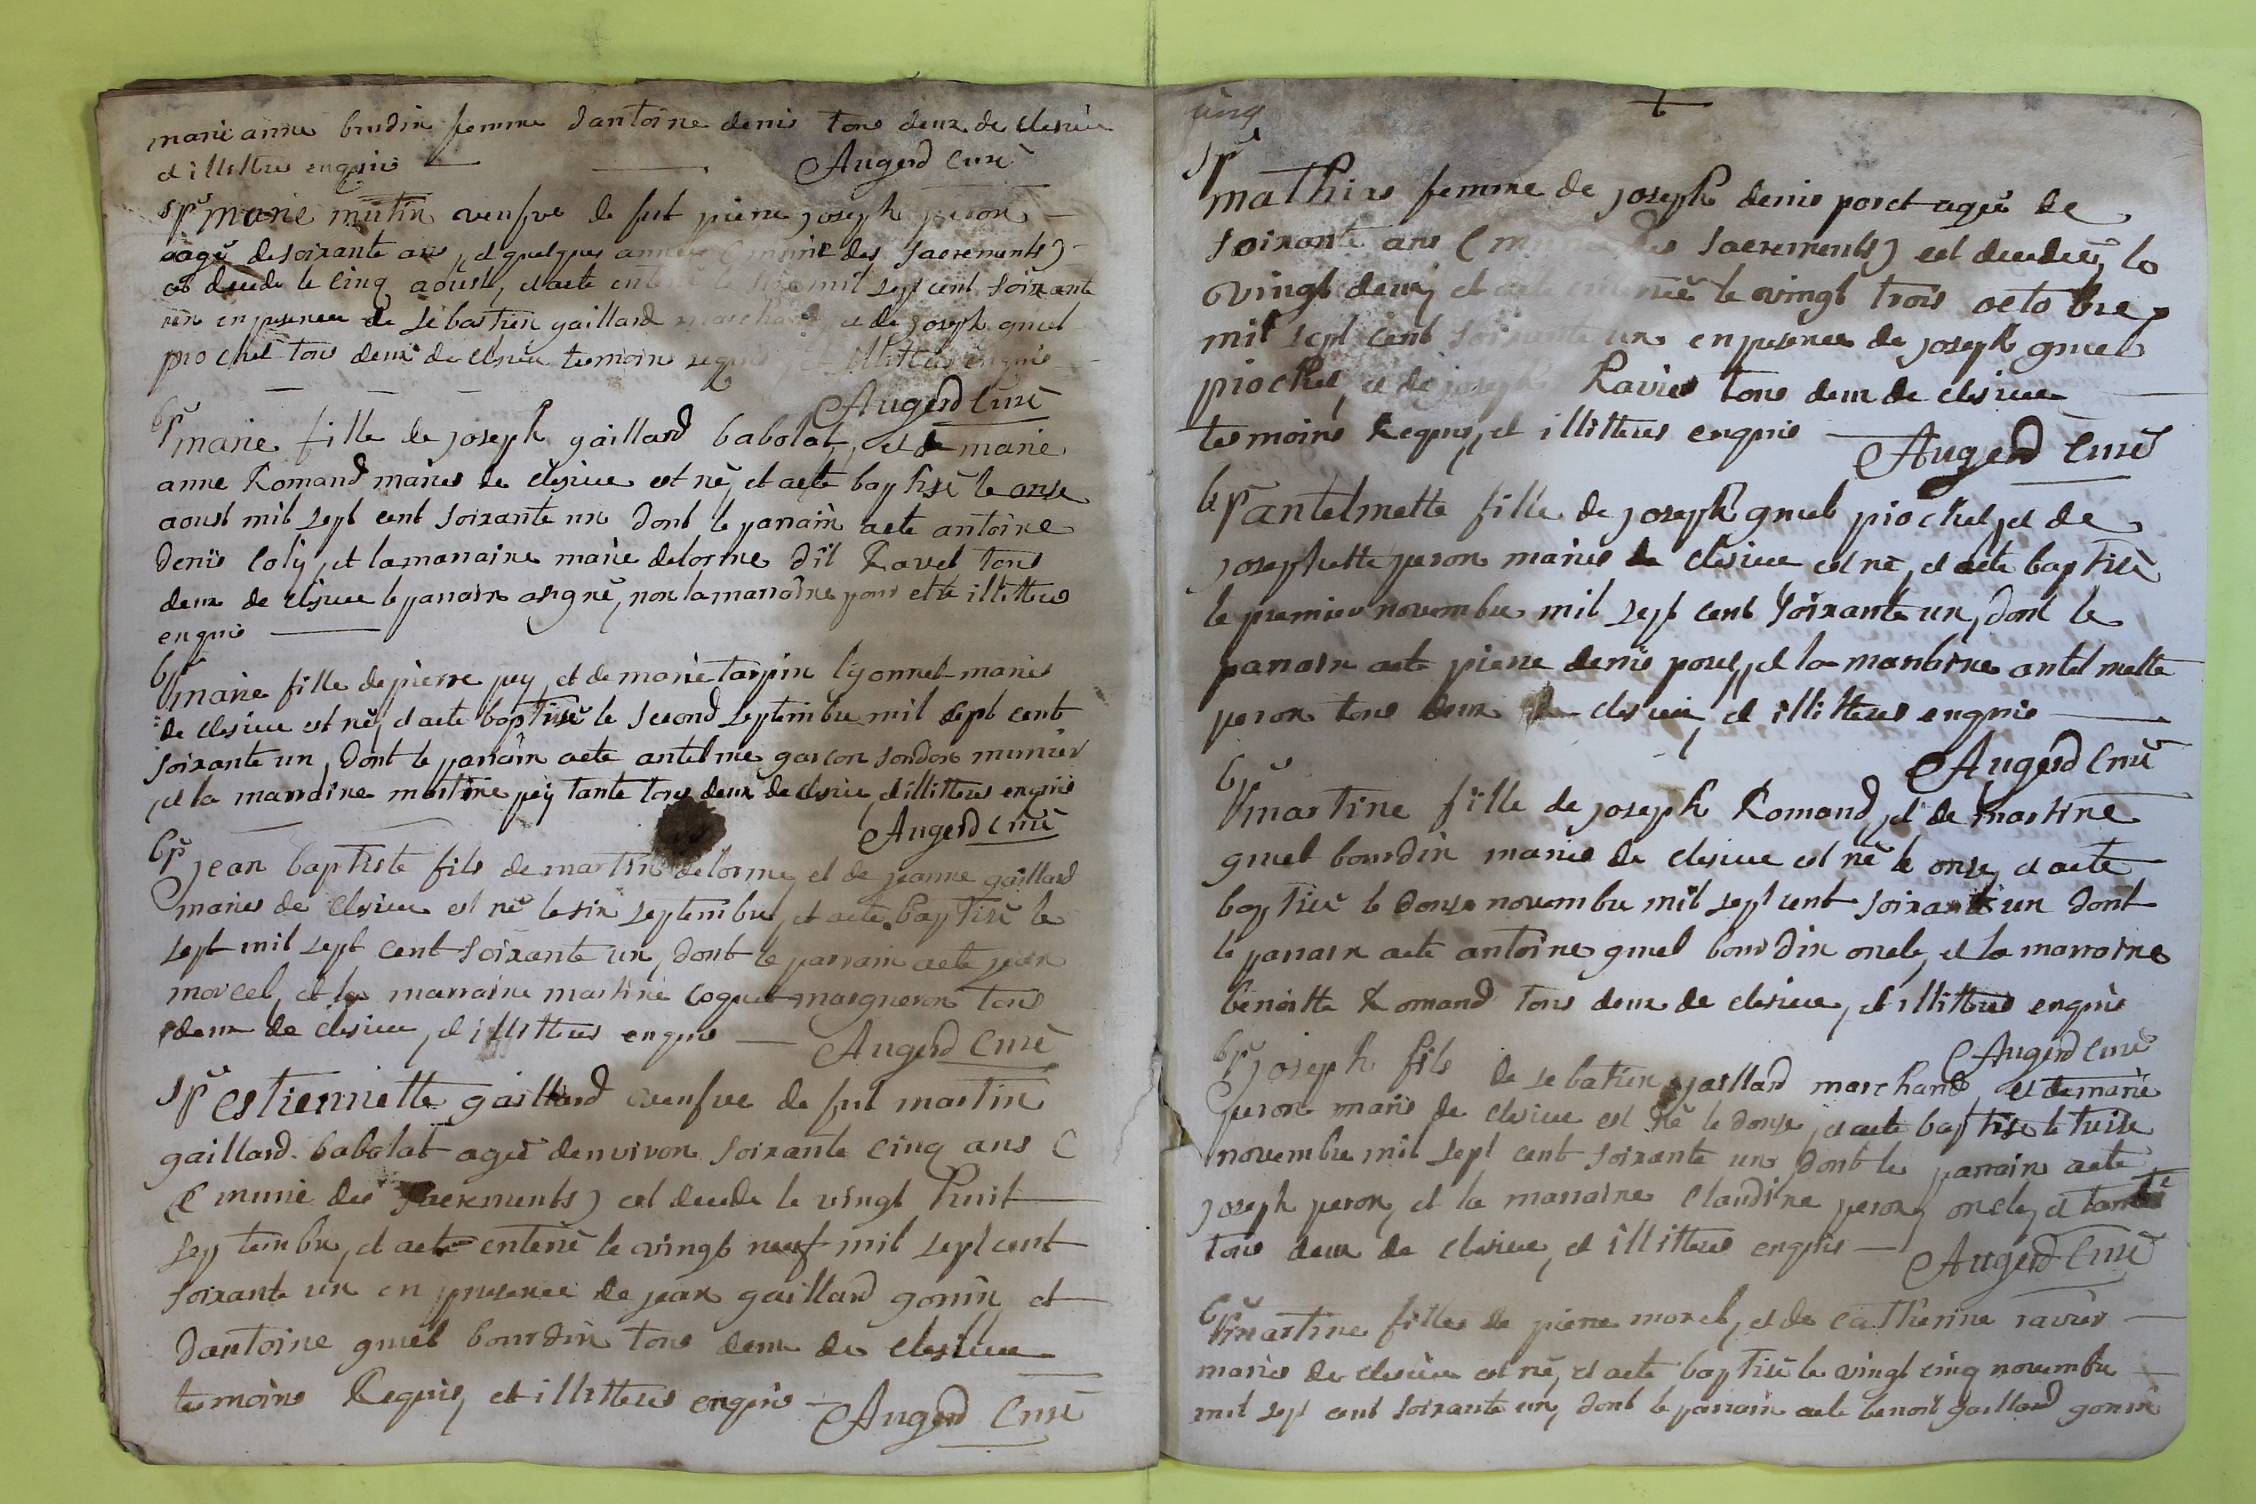 marie anne bordin femme d'antoine denis tous deux de clesieu
et illitteres enquis — — Augerd Curé
Spr marie mutin veufve de fut pierre joseph peron —
agée de soixante ans, et quelques années (munie des sacrements)
est decede le cinq aoust, et acte enterré le six mil sept cent soixante
un en presence de sebastien gaillard marchand, et de joseph gruel
piochet tous deux de clesieu temoins requis, et illitteres enquis
Augerd Curé
bpt marie fille de joseph gaillard babolat, et de marie
anne Romand mariés de clesieu est né, et acte baptisé le onze
aoust mil sept cent soixante un dont le parrain acte antoine
denis coly, et la marraine marie delorme dit Ravet tous
deux de clesieu le parrain asigné, non la marraine pour etre illittere
enquis —
bpt marie fille de pierre pey, et de marie tarpin lyonnet mariés
de clesieu est né, et acte baptisé le second septembre mil sept cent
soixante un, dont le parrain acte antelme garcon munier
, et la marraine martine pey tante tous deux de clesieu, et illitteres enquis
Augerd Curé
bpt jean baptiste fils de martin delorme, et de jeanne gaillard
mariés de clesieu est né le six septembre, et acte baptisé le
sept mil sept cent soixante un, dont le parrain acte jean
morcel, et la marraine martine coquet margueron tous
deux de clesieu, et illitteres enquis — Augerd Curé
Spr estiennette gaillard veufve de fut martin
gaillard babolat agée denviron soixante cinq ans (
(munie des sacrements) est decede le vingt huit
septembre, et acte enterré le vingt neuf mil sept cent
soixante un en presence de jean gaillard gonin, et
dantoine gruel bourdin tous deux de clesieu
temoins Requis, et illitteres enquis — Augerd Curé
cinq
Spr
mathias femme de joseph denis poret agée de
soixante ans ( des sacrements) est decedée, le
vingt deux, et acte enterrée le vingt trois octobre
mil sept cent soixante un en presence de joseph gruel
piochet, et de joseph Ravier tous deux de clesieu
temoins Requis, et illitteres enquis — Augerd Curé
bpt antelmette fille de joseph gruel piochet, et de
josephette peron mariés de clesieu est né, et acte baptisé
le premier novembre mil sept cent soixante un, dont le
parrain acte pierre denis poret, et la marraine antelmette
peron tous deux de clesieu, et illitteres enquis —
Augerd Curé
bpt martine fille de joseph Romand, et de martine
gruel bourdin mariés de clesieu est né le onze, et acte
baptisé le douze novembre mil sept cent soixante un dont
le parrain acte antoine gruel bourdin oncle, et la marraine
benoitte Romand tous deux de clesieu, et illitteres enquis
Augerd Curé
bpt joseph fils de sebatien gaillard marchand, et de marie
peron mariés de clesieu est né le douze, et acte baptisé le treise
novembre mil sept cent soixante un, dont le parrain acte
joseph peron, et la marraine claudine peron, oncle, et tante
tous deux de clesieu, et illitteres enquis — Augerd Curé
bpt martine fille de pierre morel, et de catherine ravier —
mariés de clesieu est né, et acte baptisé le vingt cinq novembre
mil sept cent soixante un, dont le parrain acte benoit gaillard gonin